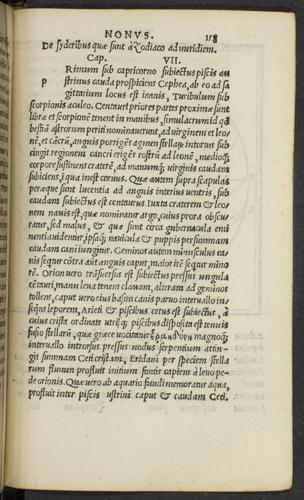 NONVS. 118
De syderibus quæ sunt à Zodiaco ad meridiem.
Cap. VII.
PRimum sub capricorno subiectus piscis au
strinus cauda prospiciens Cephea, ab eo ad sa
gittarium locus est inanis, Turibulum sub
scorpionis aculeo. Centauri priores partes proximæ sunt
libræ et scorpionē tenent in manibus, simulacrum id quod
bestiā astrorum periti nominauerunt, ad virginem et leo
nē, et cācrū, anguis porrigēs agmen stellarū intortus sub
cingit regionem cancri erigēs rostrū ad leonē, medioque
corpore sustinens craterē, ad manumque virginis caudam
subiciens, in qua inest coruus. Quæ autem supra scapulas
peræque sunt lucentia ad anguis interius uentris, sub
caudam subiectus est centaurus. Iuxta craterem & leo
nem nauis est, quæ nominatur argo, cuius prora obscu
ratur, sed malus, & quæ sunt circa gubernacula emi
nentia uidentur, ipsaque nauicula & puppis per summam
caudam cani iungitur. Geminos autem minusculus ca
nis sequitur cōtra aūt anguis caput, maior itē sequitur mino
rē. Orion uero trāsuersus est subiectus pressus ungula
cētauri, manu leua tenens clauam, alteram ad geminos
tollens, caput uero eius basim canis paruo interuallo in
seqēs leporem, Arieti & piscibus cetus est subiectus, à
cuius crista ordinate utrisque piscibus disposita est tenuis
fusio stellarū, quæ græce vocitatur magnoque
interuallo introrsus pressus nodus serpentium attin
git summam Ceti cristam, Eridani per speciem stella
rum flumen profluit initium fontis capiens à leuo pe-
de orionis. Quæ uero ab aquario fundi memoratur aqua,
profluit inter piscis ustrini caput & caudam Ceti.